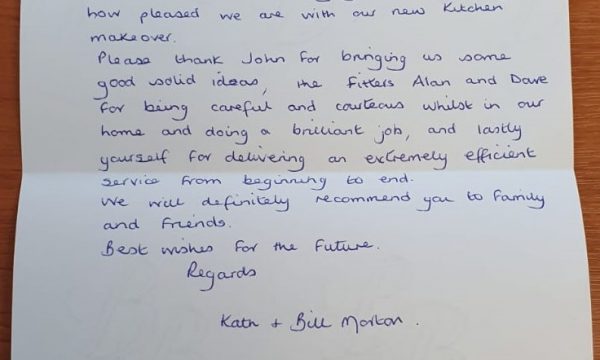 how pleased we are with our new kitchen
makeover.
Please thank John for bringing us some
good solid ideas, the fitters Alan and Dave
for being careful and courteous whilst in our
home and doing a brilliant job, and lastly
yourself for delivering an extremely efficient
service from beginning to end.
We will definitely recommend you to family
and friends.
Best wishes for the future.
Regards
Kath + Bill Morton.